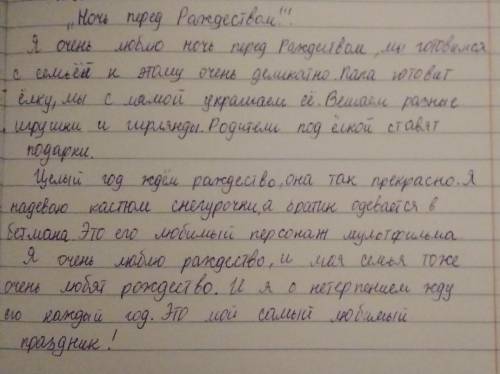 „Ночь перед Раждеством"!!
Я очень люблю ночь перед Раждеством, мы готовимся
с семьёй к этому очень деликатно. Папа готовит
ёлку, мы с мамой украшаем её. Вешаем разные
игрушки и гирлянды. Родители под ёлкой ставят
подарки.
Целый год ждём раждество, она так прекрасно. Я
надеваю кастюм снегурочки, а братик одевается в
бетмана. Это его любимый персонаж мультфильма
Я очень люблю раждество, и мая семья тоже
очень любят рождество. И я с нетерпением жду
его каждый год. Это мой самый любимый
праздник!